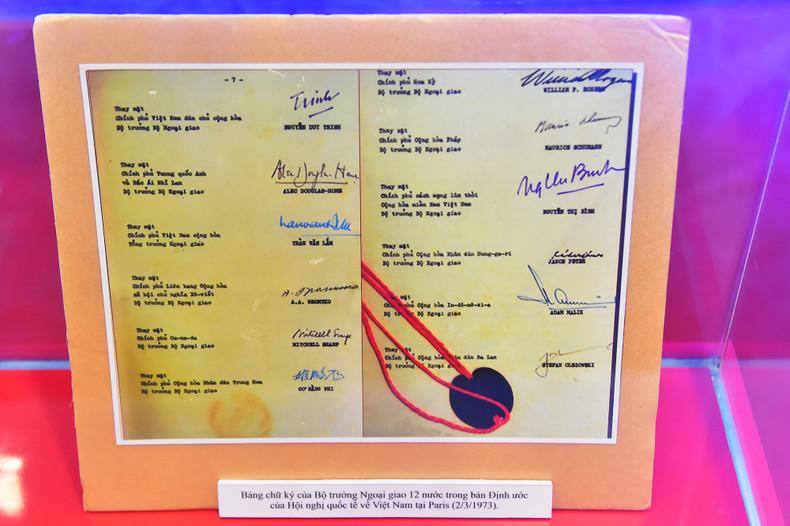 - 7 -
Thay mặt
Chính phủ Việt Nam dân chủ cộng hòa
Bộ trưởng Bộ Ngoại giao
Trinh
NGUYỄN DUY TRINH
Thay mặt
Chính phủ Vương quốc Anh
và Bắc Ái Nhĩ Lan
Bộ trưởng Bộ Ngoại giao
Alec Douglas-Home
ALEC DOUGLAS-HOME
Thay mặt
Chính phủ Việt Nam cộng hòa
Tổng trưởng Ngoại giao
TRẦN VĂN LẮM
Thay mặt
Chính phủ Liên bang Cộng hòa
xã hội chủ nghĩa Xô-viết
Bộ trưởng Bộ Ngoại giao
A.A. GROMIKO
Thay mặt
Chính phủ Ca-na-đa
Bộ trưởng Bộ Ngoại giao
Mitchell Sharp
MITCHELL SHARP
Thay mặt
Chính phủ Cộng hòa Nhân dân Trung Hoa
Bộ trưởng Bộ Ngoại giao
CƠ BẰNG PHI
Thay mặt
Chính phủ Hoa Kỳ
Bộ trưởng Bộ Ngoại giao
WILLIAM P. ROGERS
Thay mặt
Chính phủ Cộng hòa Pháp
Bộ trưởng Bộ Ngoại giao
MAURICE SCHUMANN
Thay mặt
Chính phủ cách mạng lâm thời
Cộng hòa miền Nam Việt Nam
Bộ trưởng Bộ Ngoại giao
NGUYỄN THỊ BÌNH
Thay mặt
Chính phủ Cộng hòa Nhân dân Hung-ga-ri
Bộ trưởng Bộ Ngoại giao
JANOS PETER
mặt
phủ Cộng hòa In-đô-nê-xi-a
Bộ trưởng Bộ Ngoại giao
ADAM MALIK
Thay mặt
Chính phủ Cộng hòa dân Ba lan
Bộ trưởng Ngoại giao
STEFAN OLSZOWSKI
Bảng chữ ký của Bộ trưởng Ngoại giao 12 nước trong bản Định ước
của Hội nghị quốc tế về Việt Nam tại Paris (2/3/1973).